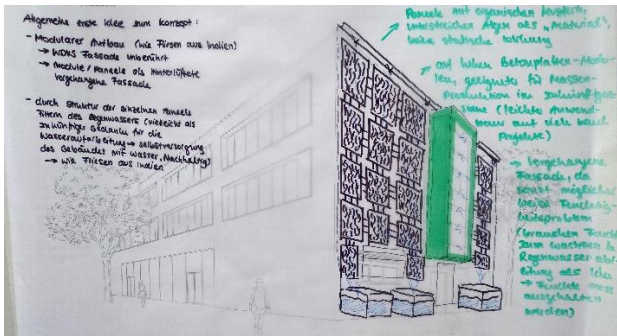 Allgemeine erste Idee zum Konzept:
- Modularer Aufbau (wie Fliesen aus Indien)
→ WDVS Fassade unberührt
→ Module / Paneele als hinterlüftete
vorgehangene Fassade
- durch Struktur der einzelnen Paneele
Filtern des Regenwassers (vielleicht als
zukünftige Gedanke für die
Wasseraufbereitung → Selbstversorgung
des Gebäudes mit Wasser, Nachhaltig)
→ wie Fliesen aus Indien
Paneele mit organischen Mustern,
unterstreichen Algen als „Material",
keine statische Wirkung
auf Beton
geeignet für Massen-
Produktion im
Sinne (leichte Anwend-
auf viele
Projekte)
→ Vorgehangene
Fassade, da
sonst möglicher
weise Feuchtig-
keitsproblem
(brauchen Feuchte
zum wachsen &
Regenwasser ab-
leitung als Idee
→ Feuchte muss
ausgehalten
werden)